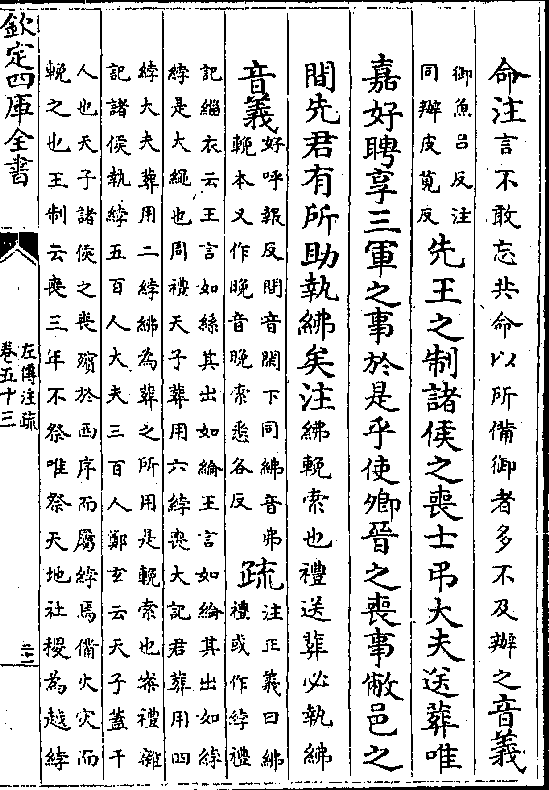 命注言不敢忘共命以所備御者多不及辦之音義
御魚呂反注
同辦皮莧反
先王之制諸侯之喪士弔大夫送葬唯
嘉好聘享三軍之事於是乎使卿晉之喪事敝邑之
間先君有所助執紼矣注紼輓索也禮送葬必執紼
音義
好呼報反間音閑下同紼音弗
輓本又作晚音晚索悉各反
疏
注正義曰紼
禮或作綍禮
記緇衣云王言如絲其出如綸王言如綸其出如綍
綍是大繩也周禮天子葬用六綍喪大記君葬用四
綍大夫葬用二綍紼為葬之所用是輓索也案禮雜
記諸侯執綍五百人大夫三百人鄭玄云天子蓋千
人也天子諸侯之喪殯於西序而屬綍焉備火灾而
輓之也王制云喪三年不祭唯祭天地社稷為越綍
欽定四庫全書
左傳注疏
卷五十三